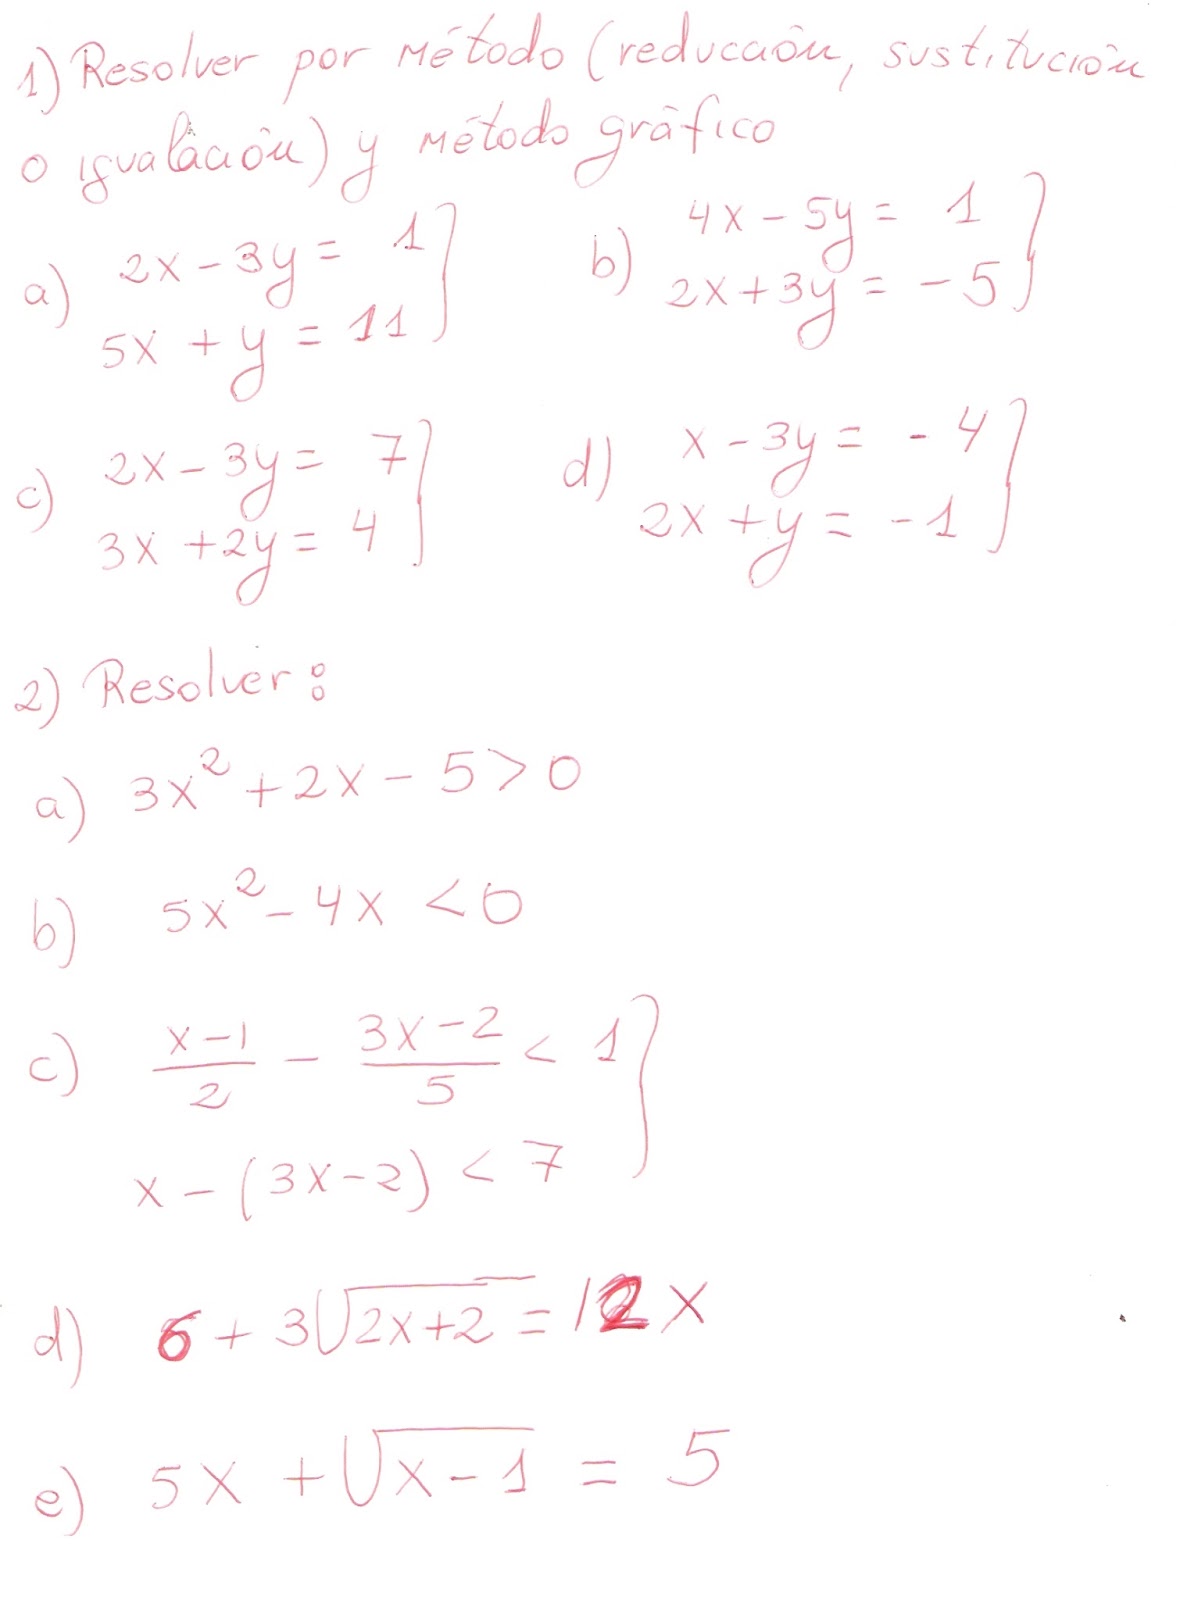 1) Resolver por Método (reducción, sustitución
o igualación) y Método gráfico
a) 2x - 3y = 1
5x + y = 11
b) 4x - 5y = 1
2x + 3y = -5
c) 2x - 3y = 7
3x + 2y = 4
d) x - 3y = -4
2x + y = -1
2) Resolver:
a) 3x² + 2x - 5 > 0
b) 5x² - 4x < 0
c) (x-1)/2 - (3x-2)/5 < 1
x - (3x-2) < 7
d) 6 + 3√(2x+2) = 12x
e) 5x + √(x-1) = 5